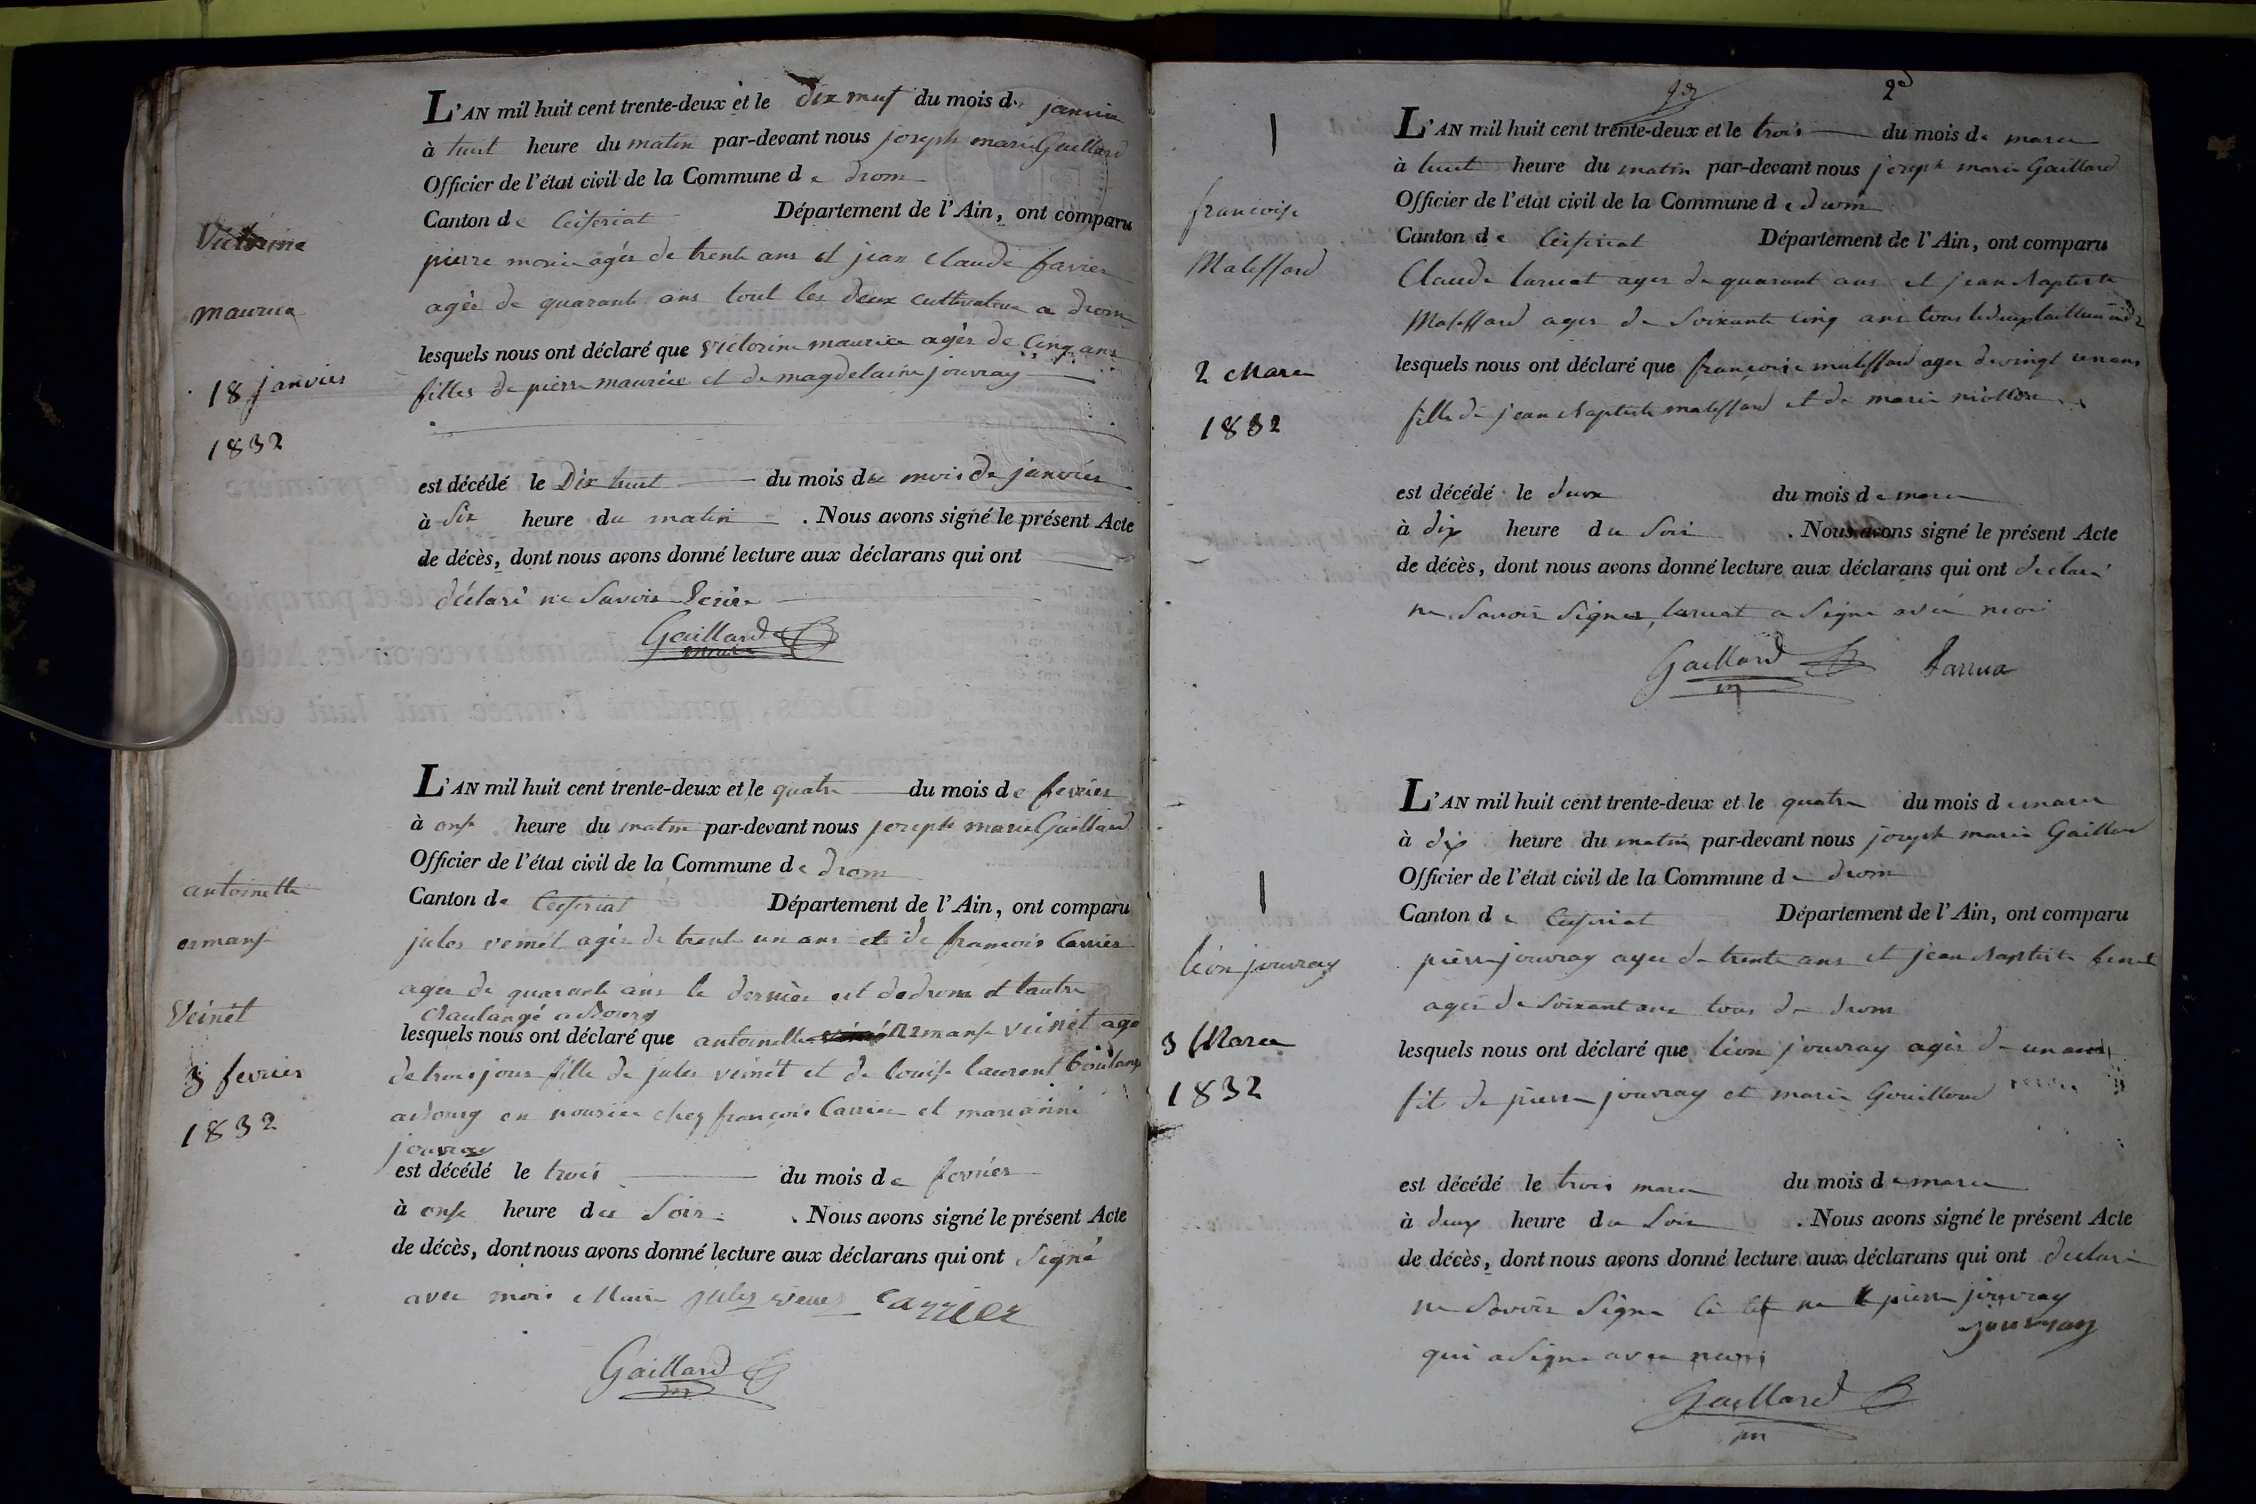 Victorine
maurice
18 janvier
1832
L'AN mil huit cent trente-deux et le dix neuf du mois de janvier
à huit heure du matin par-devant nous joseph marie Gaillard
Officier de l'état civil de la Commune de drom
Canton de Ceiseriat Département de l'Ain, ont comparu
pierre moric agés de trente ans et jean Claude favier
agés de quarante ans tout les deux cultivateur a drom
lesquels nous ont déclaré que victorine maurice agés de Cinq ans
filles de pierre maurice et de magdelaine jouvray
est décédé le Dix huit du mois du mois de janvier
à Six heure du matin . Nous avons signé le présent Acte
de décès, dont nous avons donné lecture aux déclarans qui ont
déclaré ne Savoir Ecrire
Gaillard
maire
antoinette
ermanse
Veinet
3 fevrier
1832
L'AN mil huit cent trente-deux et le quatre du mois de fevrier
à onse heure du matin par-devant nous joseph marie Gaillard
Officier de l'état civil de la Commune de drom
Canton de Ceiseriat Département de l'Ain, ont comparu
jules veinet agés de trente un ans et de francois Carrier
agés de quarante ans le dernier est de drom et lautre
a Bourg
lesquels nous ont déclaré que antoinette ermanse veinet age
de trois jour fille de jules veinet et de louise laurent
a Bourg en nourice chez françois Carrier et marianne
jouvray
est décédé le trois du mois de fevrier
à onse heure du Soir . Nous avons signé le présent Acte
de décès, dont nous avons donné lecture aux déclarans qui ont Signé
avec moi Maire jules veinet carrier
Gaillard
2
francoise
Maleffard
2 Mars
1832
L'AN mil huit cent trente-deux et le trois du mois de mars
à huit heure du matin par-devant nous joseph marie Gaillard
Officier de l'état civil de la Commune de drom
Canton de Ceiseriat Département de l'Ain, ont comparu
Claude laruat ages de quarant ans et jean Baptiste
Maleffard ages de Soixante Cinq ans tous les deux
lesquels nous ont déclaré que françoise maleffard ages de vingt un ans
fille de jean Baptiste maleffard et de marie
est décédé le deux du mois de mars
à dix heure du Soir . Nous avons signé le présent Acte
de décès, dont nous avons donné lecture aux déclarans qui ont declaré
ne Savoir Signer, laruat a Signé avec moi
Gaillard Larrua
léon jouvray
3 Mars
1832
L'AN mil huit cent trente-deux et le quatre du mois de mars
à dix heure du matin par-devant nous joseph marie Gaillard
Officier de l'état civil de la Commune de drom
Canton de Ceiseriat Département de l'Ain, ont comparu
pierre jouvray ages de trente ans et jean Baptiste
agés de Soixant ans tous de drom
lesquels nous ont déclaré que léon jouvray agés de un ans
fils de pierre jouvray et marie Gouilloud
est décédé le trois mars du mois de mars
à deux heure du Soir . Nous avons signé le présent Acte
de décès, dont nous avons donné lecture aux déclarans qui ont declaré
ne Savoir Signe pierre jouvray
jouvray
qui a Signe avec nous
Gaillard